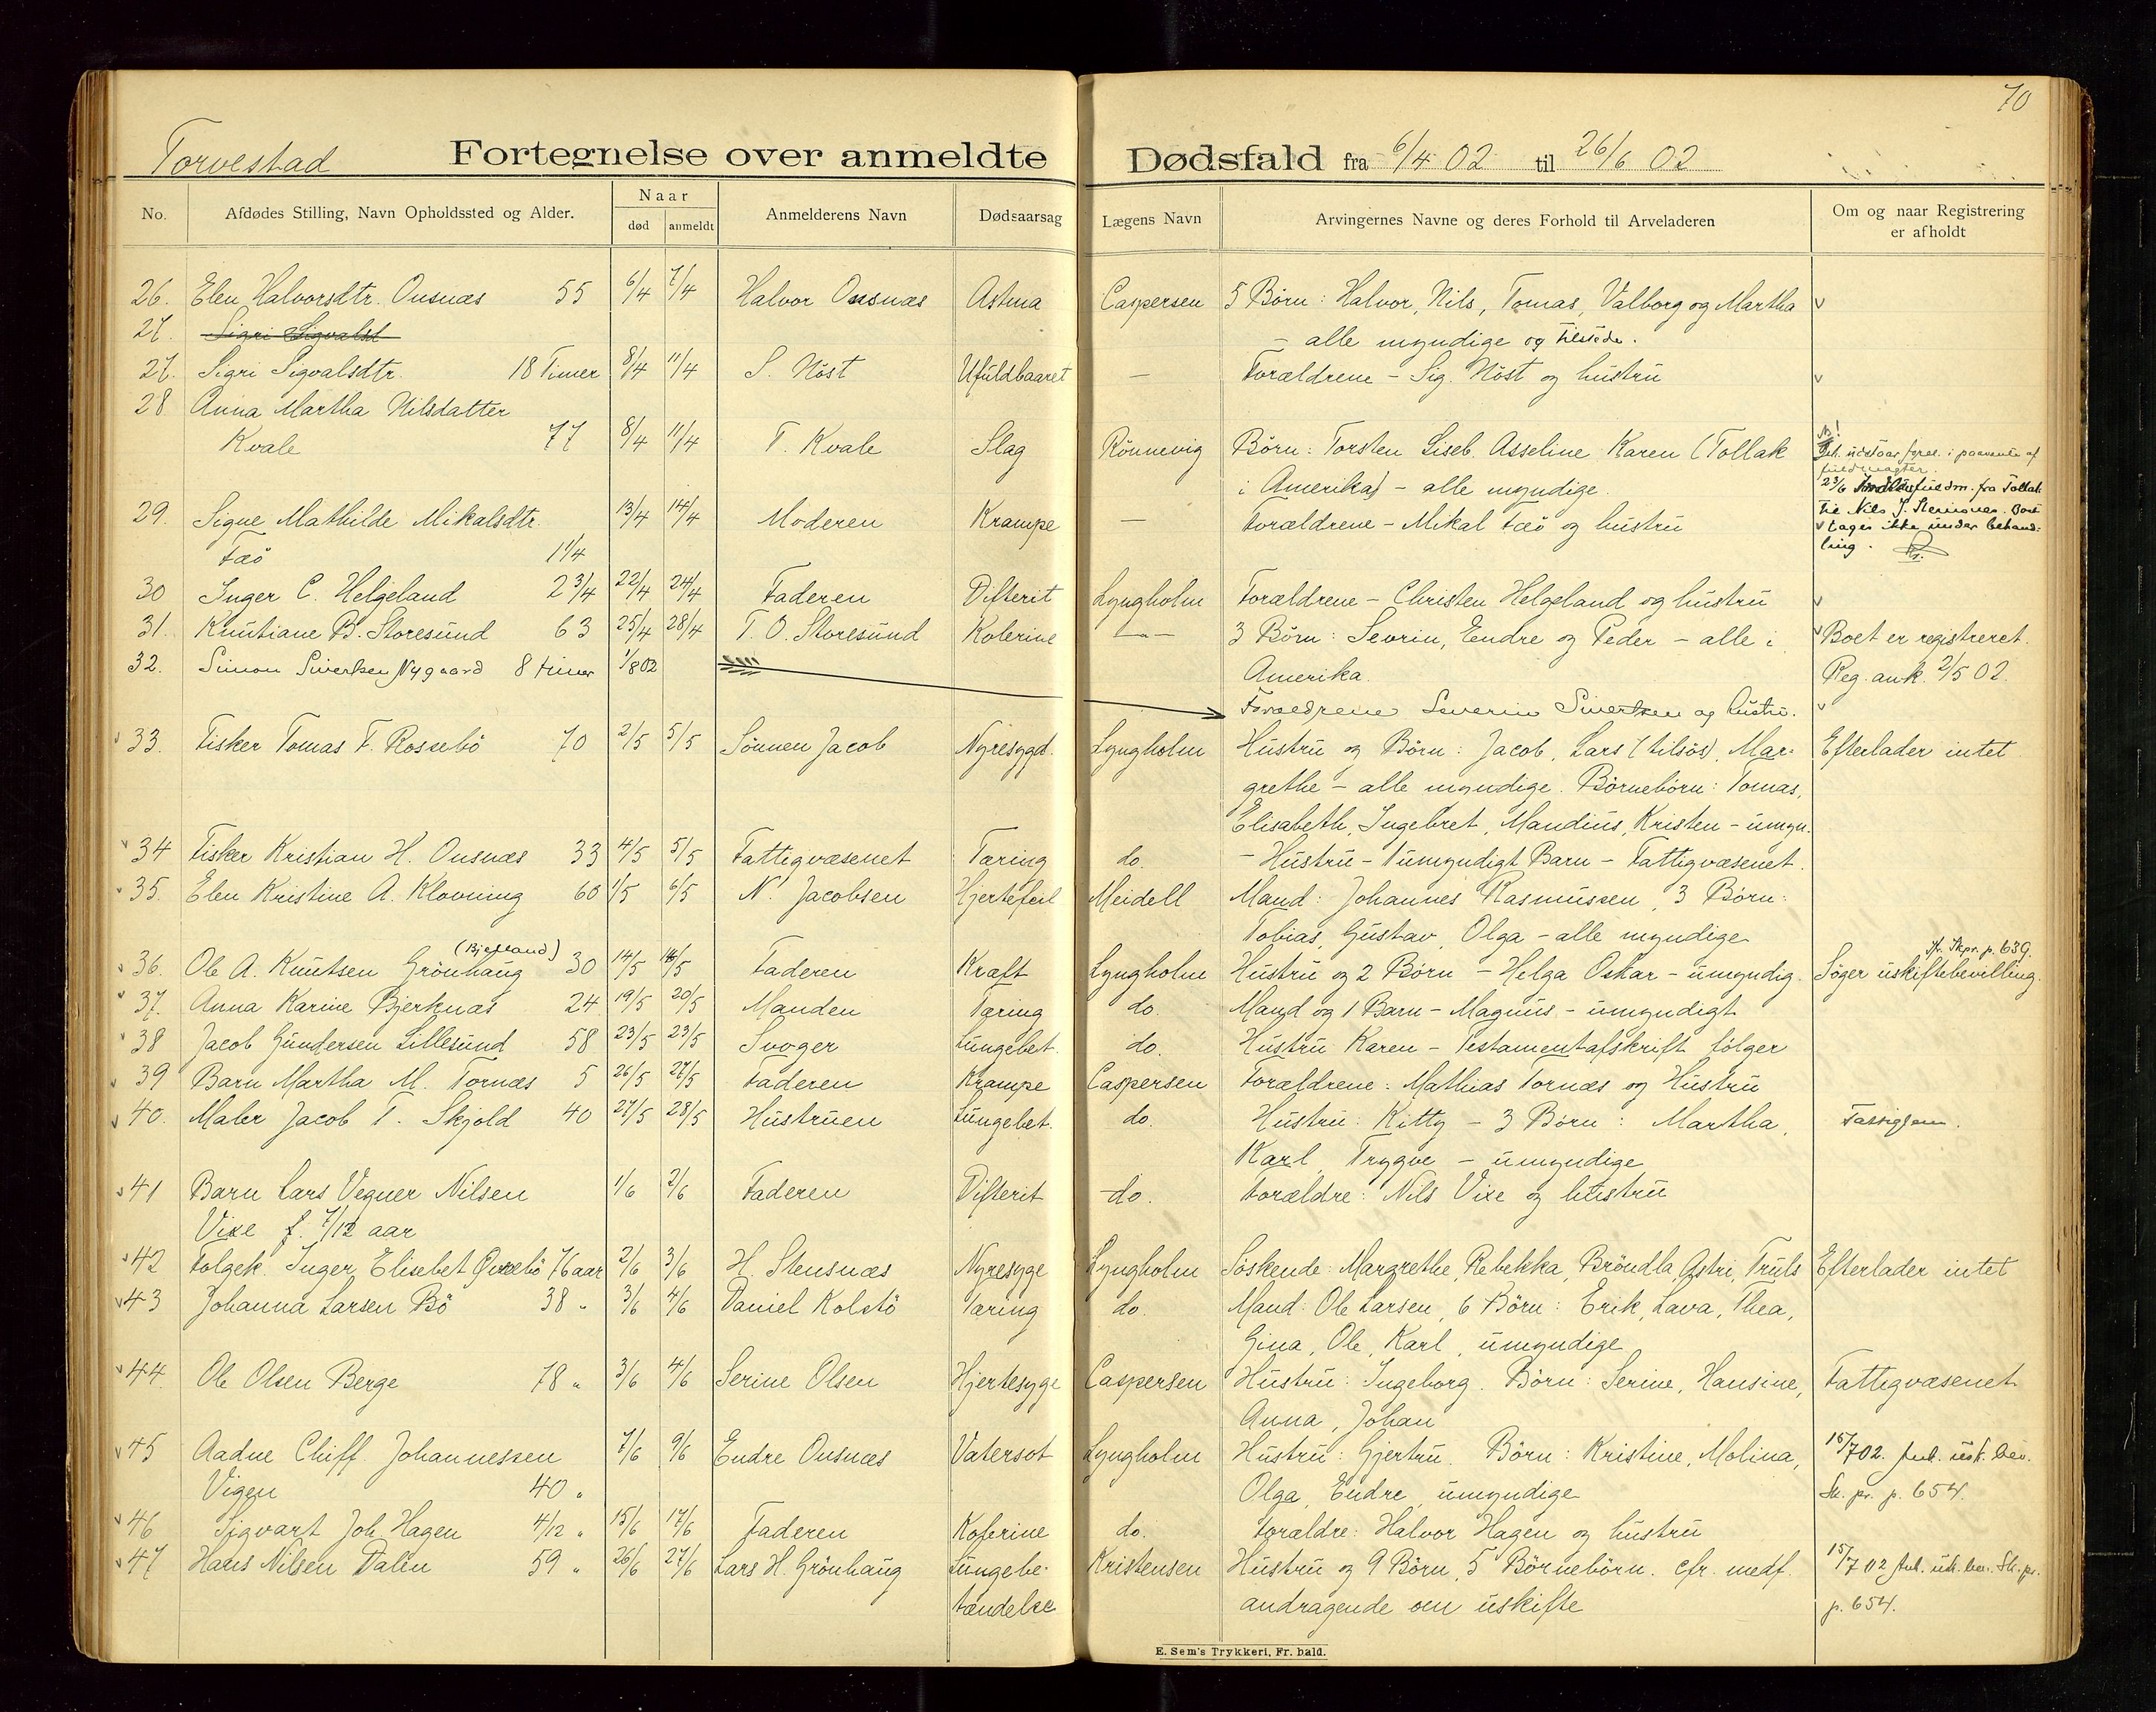 70
Torvestad Fortegnelse over anmeldte Dødsfald fra 6/4 02 til 26/6 02
No. Afdødes Stilling, Navn Opholdssted og Alder. Naar død anmeldt Anmelderens Navn Dødsaarsag Lægens Navn Arvingernes Navne og deres Forhold til Arveladeren Om og naar Registrering er afholdt
26. Elen Halvorsdtr. Onsnæs 55 6/4 7/4 Halvor Onsnæs Astma Caspersen 5 Børn: Halvor, Nils, Tomas, Valborg og Martha v
27. Sigri Sigvalsd – alle myndige og tilstede.
27. Sigri Sigvalsdtr. 18 Timer 8/4 11/4 S. Nöst Ufuldbaaret — Forældrene – Sig. Nöst og hustru v
28 Anna Martha Nilsdatter
Kvale 77 8/4 11/4 T. Kvale Slag Rönnevig Börn: Torsten Liseb. Asseline Karen (Tollak
i Amerika) – alle myndige.
23/6 fuldm. fra Tollak
til Nils J. Boet
29. Signe Mathilde Mikalsdtr. 13/4 14/4 Moderen Krampe — Forældrene – Mikal Fæö og hustru v tages ikke under behand-
Fæö 1 1/4 ling.
30 Inger C. Helgeland 2 3/4 22/4 24/4 Faderen Difterit Lyngholm Forældrene – Christen Helgeland og hustru v
31. Knutiane B. Storesund 63 25/4 28/4 T. O. Storesund Kolerine —"— 3 Börn: Sevrin, Endre og Peder – alle i v Boet er registreret.
32. Simon Sivertsen Nygaard 8 timer 1/8 02 Amerika. Reg. ank. 2/5 02.
Forældrene Severin Sivertsen og hustru. v
v 33. Fisker Tomas F. Rossebö 70 2/5 5/5 Sönnen Jacob Nyresygd. Lyngholm Hustru og Börn: Jacob, Lars (tilsös), Mar- Efterlader intet
grethe – alle myndige. Börnebörn: Tomas,
Elisabeth, Ingebret, Mandius, Kristen – umyn.
v 34 Fisker Kristian H. Onsnæs 33 4/5 5/5 Fattigvæsenet Tæring do. – Hustru – 1 umyndigt Barn – Fattigvæsenet.
v 35. Elen Kristine A. Klovning 60 1/5 6/5 N. Jacobsen Hjertefeil Meidell Mand: Johannes Rasmussen, 3 Börn:
Tobias, Gustav, Olga – alle myndige
(Bjelland) Skpr. p. 639.
v 36. Ole A. Knutsen Grönhaug 30 14/5 14/5 Faderen Kræft Lyngholm Hustru og 2 Börn – Helga Oskar – umyndig. Söger uskiftebevilling.
v 37. Anna Karine Bjerknæs 24 19/5 20/5 Manden Tæring do. Mand og 1 Barn – Magnus – umyndigt
v 38 Jacob Gundersen Lillesund 58 23/5 23/5 Svoger Lungebet. do. Hustru Karen – Testamentafskrift fölger
v 39 Barn Martha M. Tornæs 5 26/5 27/5 Faderen Krampe Caspersen Forældrene: Mathias Tornæs og Hustru
v 40. Maler Jacob T. Skjold 40 27/5 28/5 Hustruen Lungebet. do. Hustru: Kitty – 3 Börn: Martha,
Karl, Trygve – umyndige
v 41 Barn Lars Vegner Nilsen 1/6 2/6 Faderen Difterit do. Forældre: Nils Vixe og hustru
Vixe f. 7/12 aar
v 42 Folgek. Inger Elisebet Øvrebö 76 aar 2/6 3/6 H. Stensnæs Nyresyge Lyngholm Söskende: Margrethe, Rebekka, Bröndla, Astri, Truls Efterlader intet
v 43 Johanna Larsen Bö 38 " 3/6 4/6 Daniel Kolstö Tæring do. Mand: Ole Larsen, 6 Börn: Erik, Lava, Thea,
Gina, Ole, Karl, umyndige
v 44. Ole Olsen Berge 78 " 3/6 4/6 Serine Olsen Hjertesyge Caspersen Hustru: Ingeborg. Börn: Serine, Hansine, Fattigvæsenet
Anna, Johan
v 45 Aadne Chiff. Johannessen 7/6 9/6 Endre Onsnæs Vatersot Lyngholm Hustru: Gjertru. Börn: Kristine, Molina, 15/7 02. Anb. usk. bev.
Vigen 40 " Olga, Endre, umyndige Sk. pr. p. 654.
v 46 Sigvart Joh. Hagen 4/12 " 15/6 17/6 Faderen Kolerine do. Forældre: Halvor Hagen og hustru
v 47 Hans Nilsen Dalen 59 " 26/6 27/6 Lars H. Grönhaug Lungebe- Kristensen Hustru og 9 Börn, 5 Börnebörn. cfr. medf. 15/7 02 Anb. usk. bev. Sk. pr.
tændelse andragende om uskifte p. 654.
E. Sem's Trykkeri, Fr. hald.